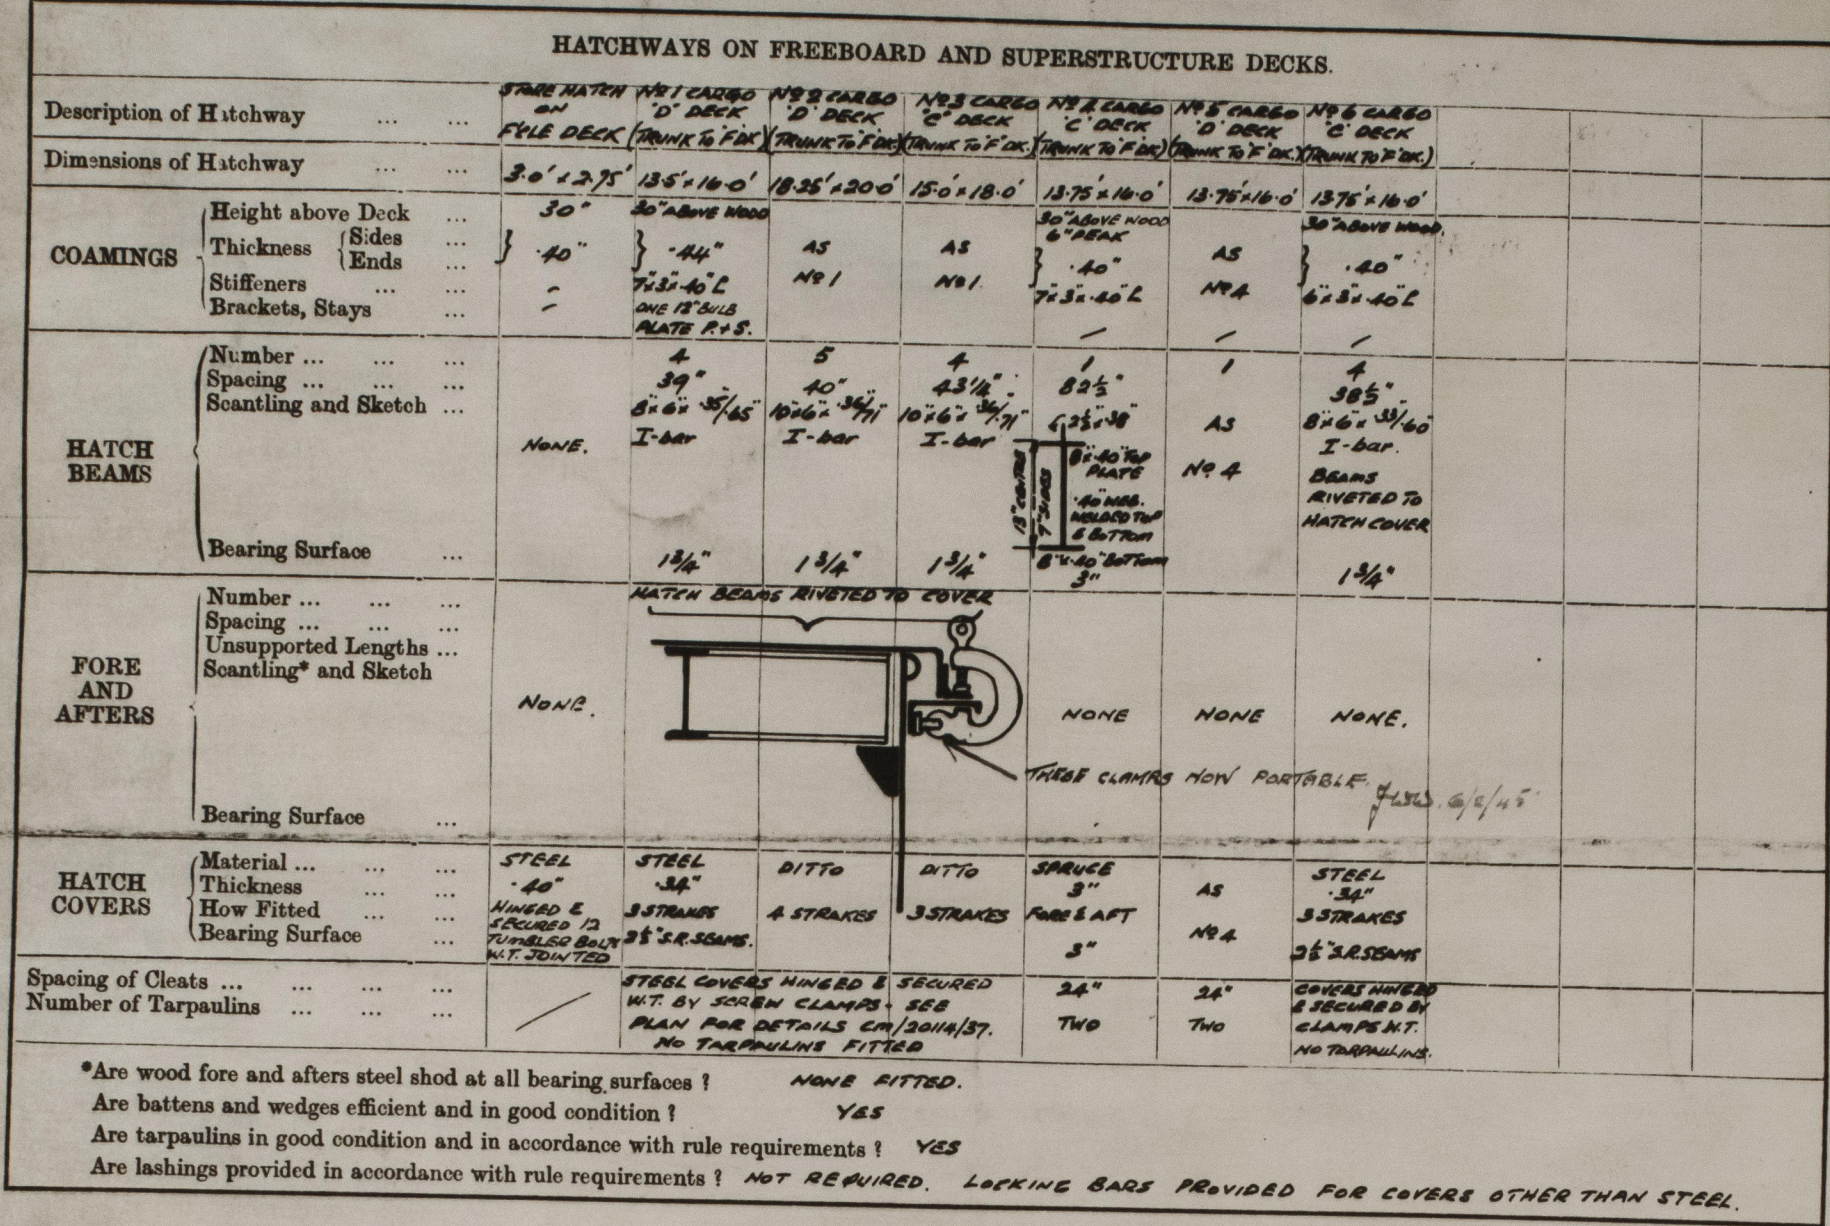 HATCHWAYS ON FREEBOARD AND SUPERSTRUCTURE DECKS.
Description of Hatchway ... ... STORE HATCH ON F'CLE DECK | No 1 CARGO 'D' DECK (TRUNK TO 'F' DK) | No 2 CARGO 'D' DECK (TRUNK TO 'F' DK.) | No 3 CARGO 'C' DECK (TRUNK TO 'F' DK.) | No 4 CARGO 'C' DECK (TRUNK TO 'F' DK) | No 5 CARGO 'D' DECK (TRUNK TO 'F' DK.) | No 6 CARGO 'C' DECK (TRUNK TO 'F' DK.)
Dimensions of Hatchway ... ... 3.0' x 2.75' | 13.5' x 16.0' | 18.25' x 20.0' | 15.0' x 18.0' | 13.75' x 16.0' | 13.75' x 16.0' | 13.75' x 16.0'
COAMINGS
Height above Deck ... 30" | 30" ABOVE WOOD | 30" ABOVE WOOD 6" PEAK | 30" ABOVE WOOD.
Thickness { Sides ... Ends ... } .40" | } .44" | AS No 1 | AS No 1. | } .40" | AS No 4 | } .40"
Stiffeners ... ... – | 7" x 3" x .40" L | 7" x 3" x .40" L | 6" x 3" x .40" L
Brackets, Stays ... – | ONE 12" BULB PLATE P. & S. | – | – | –
HATCH BEAMS
Number ... ... ... 4 | 5 | 4 | 1 | 1 | 4
Spacing ... ... ... 39" | 40" | 43 1/4" | 82 1/2" | 38 5/8".
Scantling and Sketch ... NONE. | 8" x 6" x .35/.65" I-bar | 10" x 6" x .36/.71" I-bar | 10" x 6" x .36/.71" I-bar | 2 1/2" x .38" | AS No 4 | 8" x 6" x .33/.60" I-bar.
13" CENTRE
7" SIDES
8" x .40" TOP PLATE
.40" WEB. WELDED TOP & BOTTOM
8" x .40" BOTTOM
BEAMS RIVETED TO HATCH COVER
Bearing Surface ... 1 3/4" | 1 3/4" | 1 3/4" | 3" | 1 3/4"
HATCH BEAMS RIVETED TO COVER
FORE AND AFTERS
Number ... ... ...
Spacing ... ... ...
Unsupported Lengths ...
Scantling* and Sketch
NONE. | NONE | NONE | NONE.
THESE CLAMPS NOW PORTABLE.
6/2/45
Bearing Surface ...
HATCH COVERS
Material ... ... ... STEEL | STEEL | DITTO | DITTO | SPRUCE | AS No 4 | STEEL
Thickness ... ... .40" | .34" | 3" | .34"
How Fitted ... ... HINGED & SECURED 12 TUMBLER BOLTS W.T. JOINTED | 3 STRAKES | 4 STRAKES | 3 STRAKES | FORE & AFT | 3 STRAKES
Bearing Surface ... 2 1/2" S.R. SEAMS. | 3" | 2 1/2" S.R. SEAMS
Spacing of Cleats ... ... ... ... 24" | 24"
Number of Tarpaulins ... ... ... TWO | TWO
STEEL COVERS HINGED & SECURED
W.T. BY SCREW CLAMPS - SEE
PLAN FOR DETAILS CM/20114/37.
NO TARPAULINS FITTED
COVERS HINGED
& SECURED BY
CLAMPS W.T.
NO TARPAULINS.
*Are wood fore and afters steel shod at all bearing surfaces ? NONE FITTED.
Are battens and wedges efficient and in good condition ? YES
Are tarpaulins in good condition and in accordance with rule requirements ? YES
Are lashings provided in accordance with rule requirements ? NOT REQUIRED. LOCKING BARS PROVIDED FOR COVERS OTHER THAN STEEL.